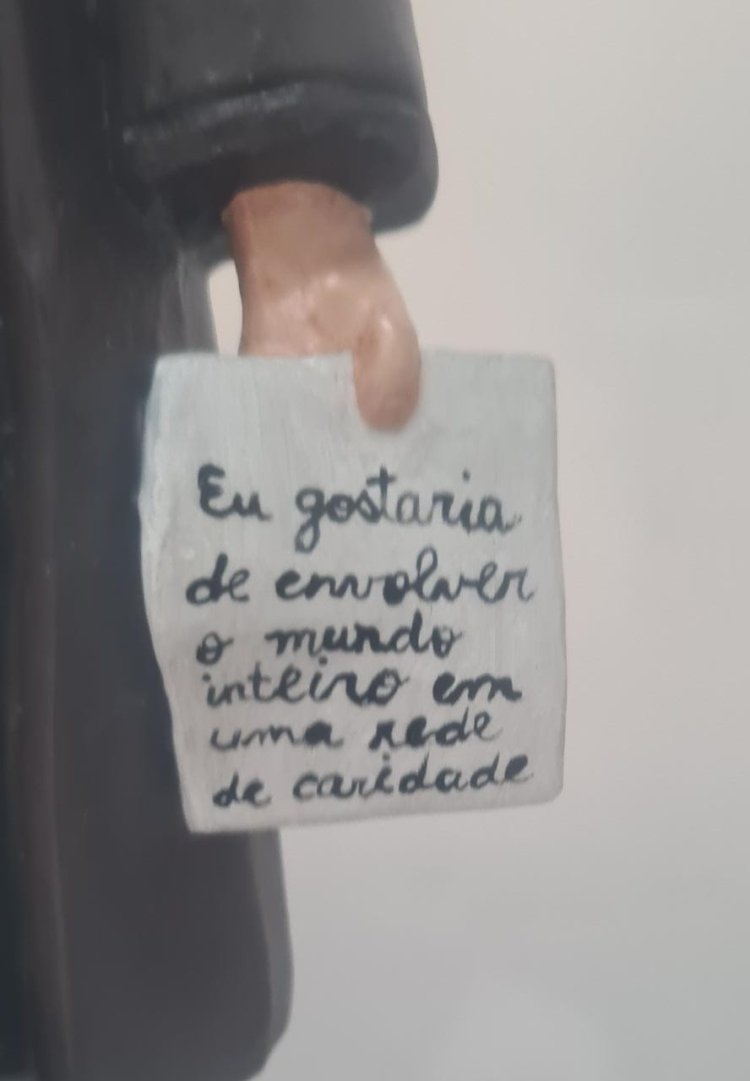 Eu gostaria
de envolver
o mundo
inteiro em
uma rede
de caridade